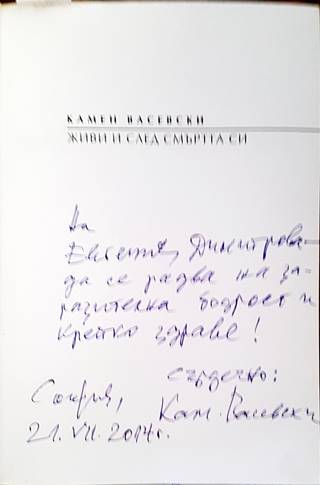 КАМЕН ВАСЕВСКИ
ЖИВИ И СЛЕД СМЪРТТА СИ
На
Евгения Димитрова –
да се радва на за-
разителна бодрост и
крепко здраве!
Сърдечно:
София, Кам. Васевски
21. VII. 2014 г.